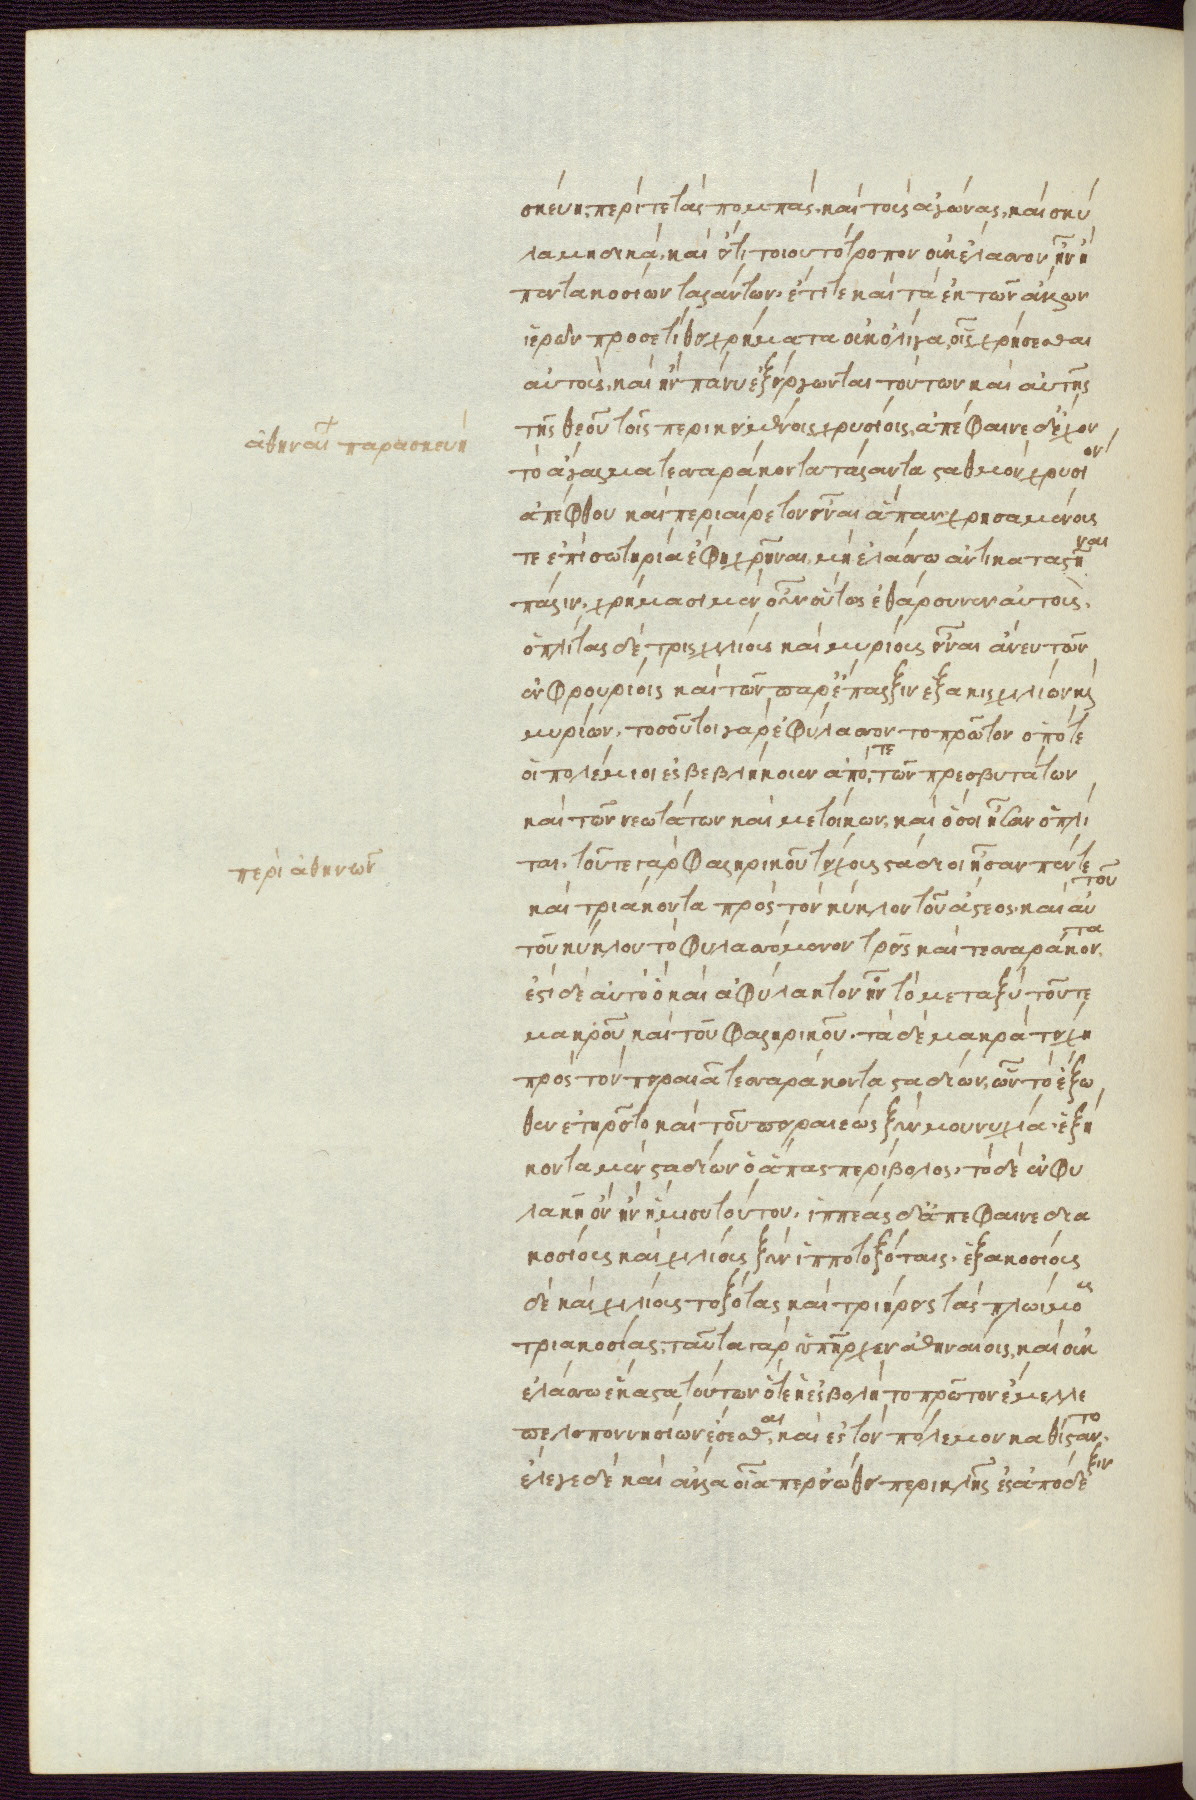 σκεύη, περί τε τὰς πομπὰς, καὶ τοὺς ἀγῶνας, καὶ σκῦ
λα μηδικὰ, καὶ εἴ τι τοιουτότροπον οὐκ ἔλασσον ἦν ἢ
πεντακοσίων ταλάντων· ἔτι τε καὶ τὰ ἐκ τῶν ἄλλων
ἱερῶν προσετίθει χρήματα οὐκ ὀλίγα, οἷς χρήσεσθαι
αὐτοὺς, καὶ ἢν πάνυ ἐξείργωνται τούτων καὶ αὐτῆς
ἀθηναί παρασκευή
τῆς θεοῦ τοῖς περικειμένοις χρυσίοις, ἀπέφαινε δ' ἔχον
τὸ ἄγαλμα τεσσαράκοντα τάλαντα σταθμὸν χρυσίον
ἀπέφθου καὶ περιαίρετον εἶναι ἅπαν χρησαμένους
τε ἐπὶ σωτηρία ἔφη χρῆναι, μὴ ἐλάσσω ἀντικαταστῆναι
πάλιν, χρήμασι μὲν οὖν οὕτως ἐθάρσυνεν αὐτούς.
ὁπλίτας δὲ τρισχιλίους καὶ μυρίους εἶναι ἄνευ τῶν
ἐν φρουρίοις καὶ τῶν παρ' ἔπαλξιν ἑξακισχιλίων καὶ
μυρίων, τοσοῦτοι γὰρ ἐφύλασσον το πρῶτον ὁπότε
οἱ πολέμιοι ἐσβεβλήκοιεν ἀπό τε τῶν πρεσβυτάτων
καὶ τῶν νεωτάτων καὶ μετοίκων, καὶ ὅσοι ἦσαν ὁπλῖ
περὶ ἀθηνῶν
ται. τοῦ τε γὰρ φαληρικοῦ τείχους στάδιοι ἦσαν πέντε
καὶ τριάκοντα πρὸς τὸν κύκλον τοῦ ἄστεος, καὶ αὐτοῦ
τοῦ κύκλου τὸ φυλασσόμενον τρεῖς καὶ τεσσαράκοντα.
ἔστι δὲ αὐτοῦ ὃ καὶ ἀφύλακτον ἦν τὸ μεταξὺ τοῦ τε
μακροῦ καὶ τοῦ φαληρικοῦ. τὰ δὲ μακρὰ τείχη
πρὸς τὸν πειραιᾶ τεσσαράκοντα σταδίων, ὧν τὸ ἔξω
θεν ἐτηρεῖτο καὶ τοῦ πειραιέως ξὺν μουνυχία. ἑξή
κοντα μὲν σταδίων ὁ ἅπας περίβολος, τὸ δὲ ἐν φυ
λακῆ ὂν ἦν ἥμισυ τούτου. ἱππέας δ' ἀπέφαινε δια
κοσίους καὶ χιλίους ξὺν ἱπποτοξόταις. ἑξακοσίους
δὲ καὶ χιλίους τοξότας καὶ τριήρεις τὰς πλωίμους
τριακοσίας, ταῦτα γὰρ ὑπῆρχεν ἀθηναίοις, καὶ οὐκ
ἐλάσσω ἕκαστα τούτων ὅτε ἡ ἐσβολὴ το πρῶτον ἔμελλε
πελοποννησίων ἔσεσθαι, καὶ ἐς τὸν πόλεμον καθίσταντο.
ἔλεγε δὲ καὶ ἄλλα οἷα περ εἰώθει περικλῆς ἐς ἀπόδειξιν